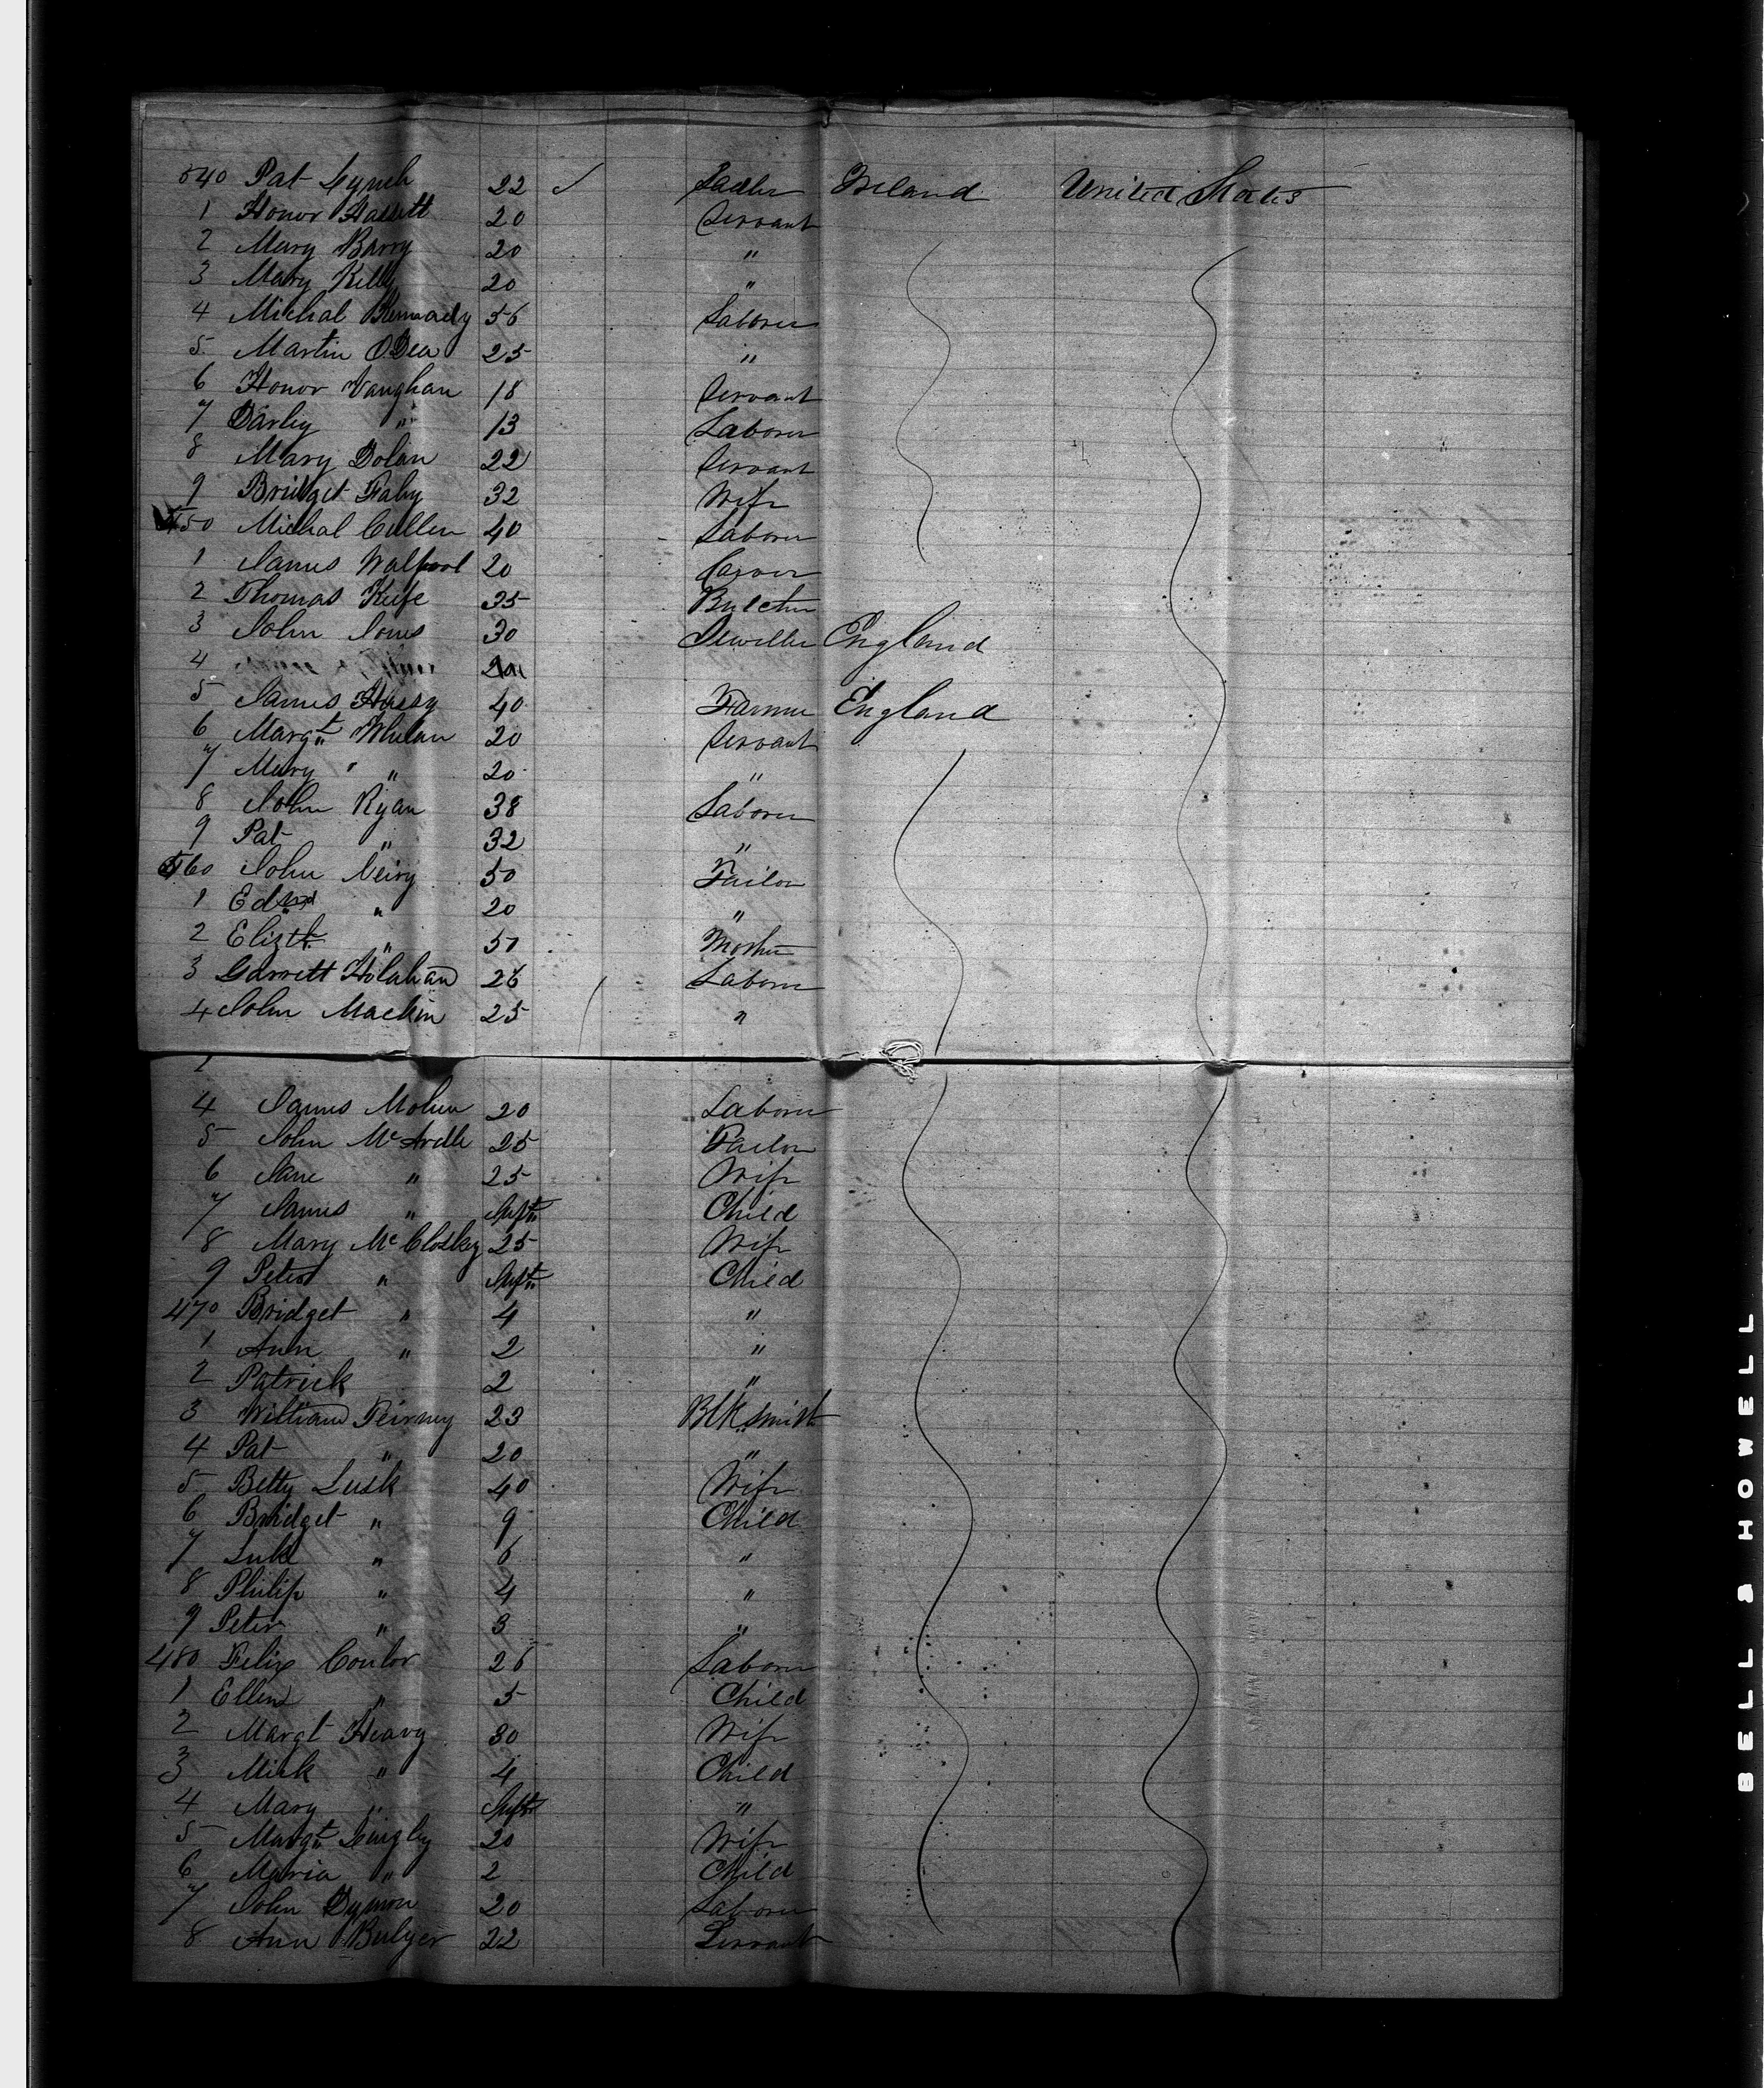 540 Pat Lynch 22 ✓ Sadler Ireland United States
1 Honor Hassett 20 Servant
2 Mary Barry 20 "
3 Mary Kelly 20 "
4 Michal Kennady 56 Laborer
5 Martin ODea 25 "
6 Honor Vaughan 18 Servant
7 Darley " 13 Laborer
8 Mary Dolan 22 Servant
9 Bridget Fahy 32 Wife
550 Michal Cullen 40 Laborer
1 James 20 Carver
2 Thomas Kiife 35 Butcher
3 John Jones 30 Jeweller England
4
5 James 40 Farmer England
6 Margt Whelan 20 Servant
7 Mary " 20 "
8 John Ryan 38 Laborer
9 Pat " 32 "
560 John 50 Tailor
1 Edmd " 20 "
2 Elizth " 51 Mother
3 Garrett Holahan 26 Laborer
4 John Mackin 25 "
4 James Mohen 20 Laborer
5 John McArdle 25 Tailor
6 Jane " 25 Wife
7 James " Inft Child
8 Mary McCloskey 25 Wife
9 Peter " Inft Child
470 Bridget " 4 "
1 Ann " 2 "
2 Patrick 2 "
3 William Teirney 23 Blksmith
4 Pat " 20 "
5 Betty Lusk 40 Wife
6 Bridget " 9 Child
7 Luke " 6 "
8 Philip " 4 "
9 Peter " 3 "
480 Felix Coulor 26 Laborer
1 Ellen " 5 Child
2 Margt Heavy 30 Wife
3 Mick " 4 Child
4 Mary " Inft "
5 Margt 20 Wife
6 Maria " 2 Child
7 John Dymon 20 Laborer
8 Ann Bulger 22 Servant
BELL & HOWELL